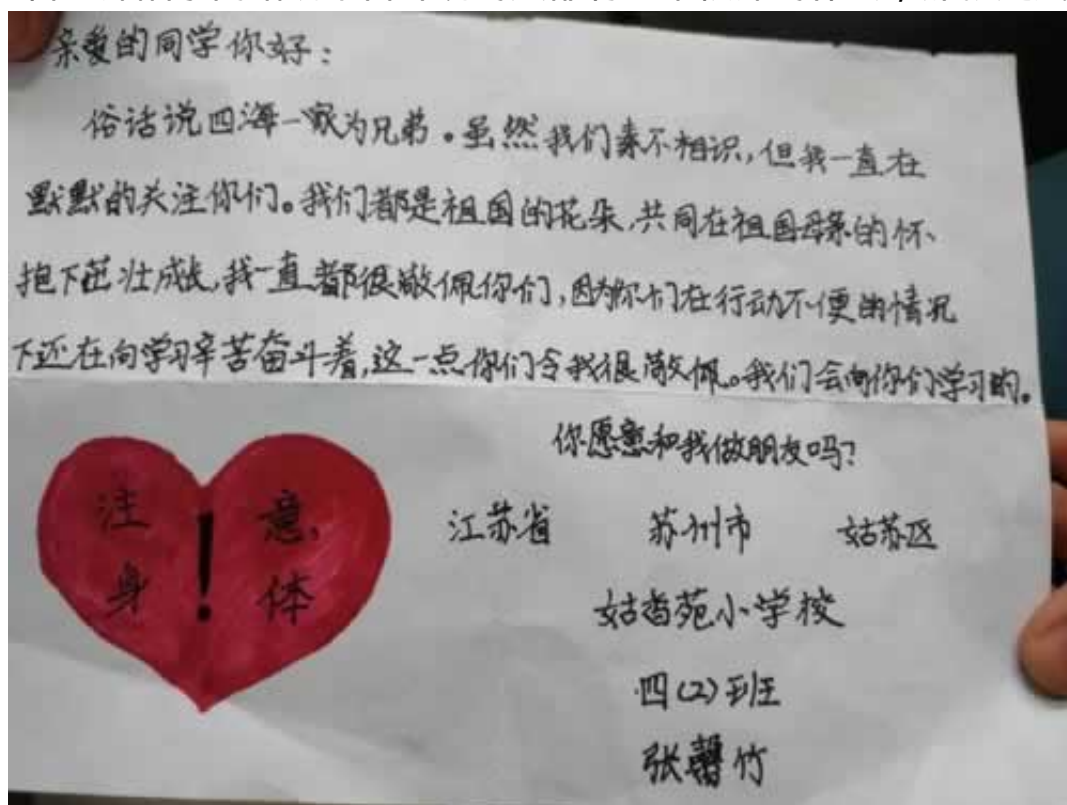 亲爱的同学你好：
俗话说四海一家为兄弟。虽然我们素不相识，但我一直在
默默的关注你们。我们都是祖国的花朵，共同在祖国母亲的怀
抱下茁壮成长，我一直都很敬佩你们，因为你们在行动不便的情况
下还在向学习辛苦奋斗着，这一点你们令我很敬佩。我们会向你们学习的。
你愿意和我做朋友吗？
注 意，
身 ! 体
江苏省 苏州市 姑苏区
姑香苑小学校
四（2）班
张馨竹